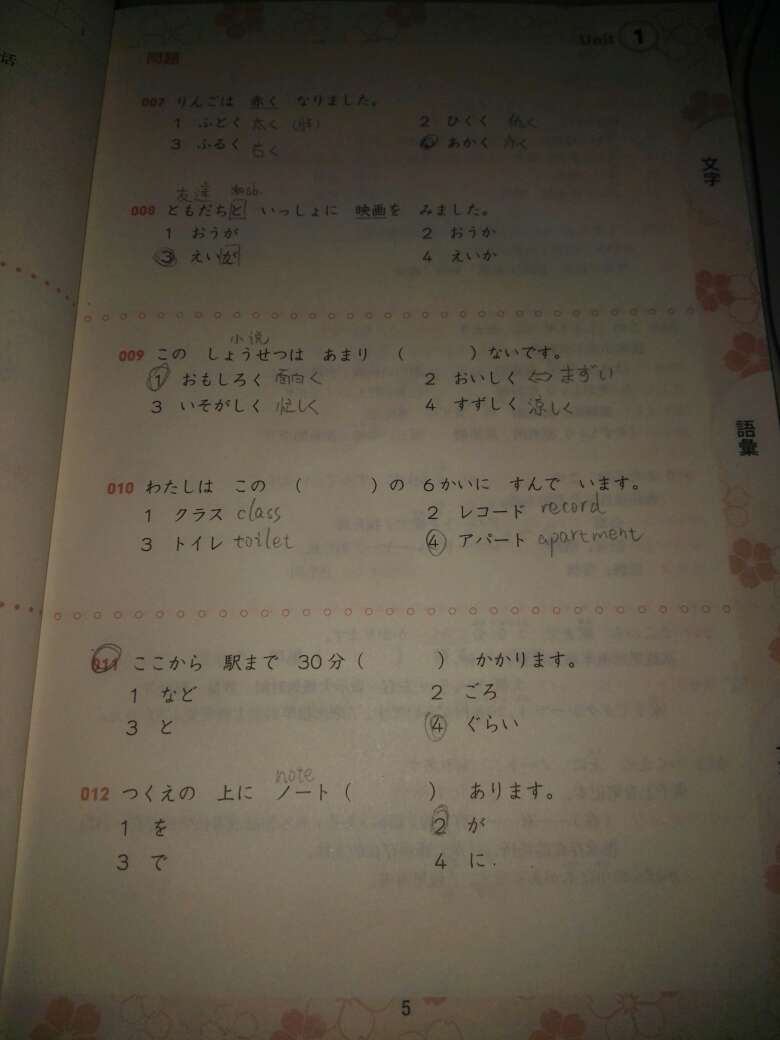 活
Unit 1
問題
007 りんごは 赤く なりました。
1 ふとく 太く 2 ひくく 低く
3 ふるく 古く 4 あかく 赤く
友達
008 ともだちと いっしょに 映画を みました。
1 おうが 2 おうか
3 えいが 4 えいか
文字
小说
009 この しょうせつは あまり ( )ないです。
1 おもしろく 面白く 2 おいしく ⇔ まずい
3 いそがしく 忙しく 4 すずしく 涼しく
語彙
010 わたしは この ( )の 6かいに すんで います。
1 クラス class 2 レコード record
3 トイレ toilet 4 アパート apartment
011 ここから 駅まで 30分( ) かかります。
1 など 2 ごろ
3 と 4 ぐらい
note
012 つくえの 上に ノート( ) あります。
1 を 2 が
3 で 4 に
5